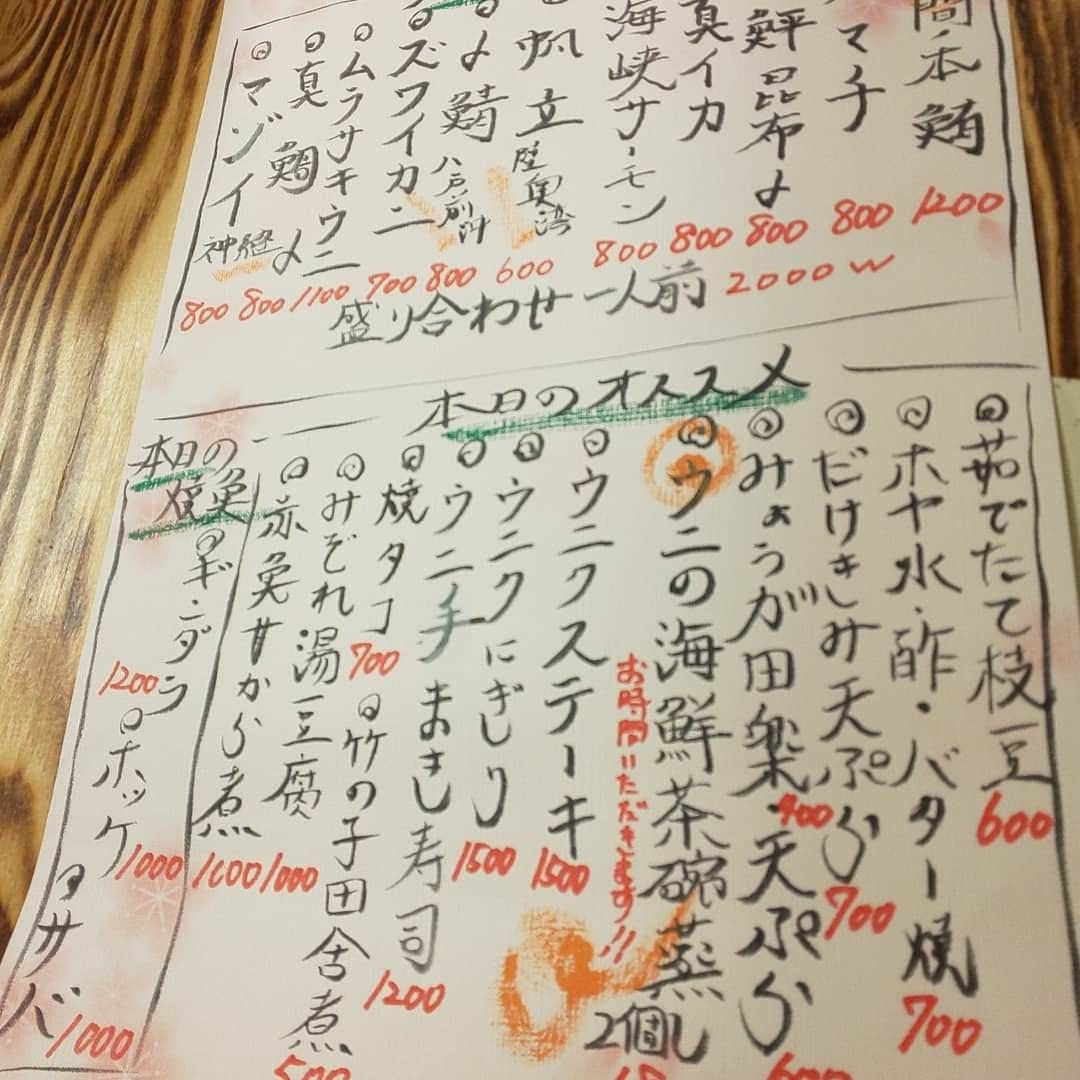 間本鮪 1200
マチ 800
鮃昆布〆 800
真イカ 800
海峡サーモン 800
帆立 陸奥湾 600
〆鯖 八戸前沖 800
ズワイカニ 700
ムラサキウニ 1100
真鯛 〆 800
マゾイ 神経 800
盛り合わせ一人前 2000
本日のオススメ
茹でたて枝豆 600
ホヤ水・酢・バター焼 700
だけきみ天ぷら 700
みょうが田楽 400 天ぷら
ウニの海鮮茶碗蒸し 2個
お時間いただきます!!
ウニクステーキ 1500
ウニクにぎり 1500
ウニ手まき寿司 1200
焼タコ 700
竹の子田舎煮 500
みぞれ湯豆腐 1000
赤魚甘から煮 1000
本日の
焼魚
ギンダラ 1200
ホッケ 1000
サバ 1000